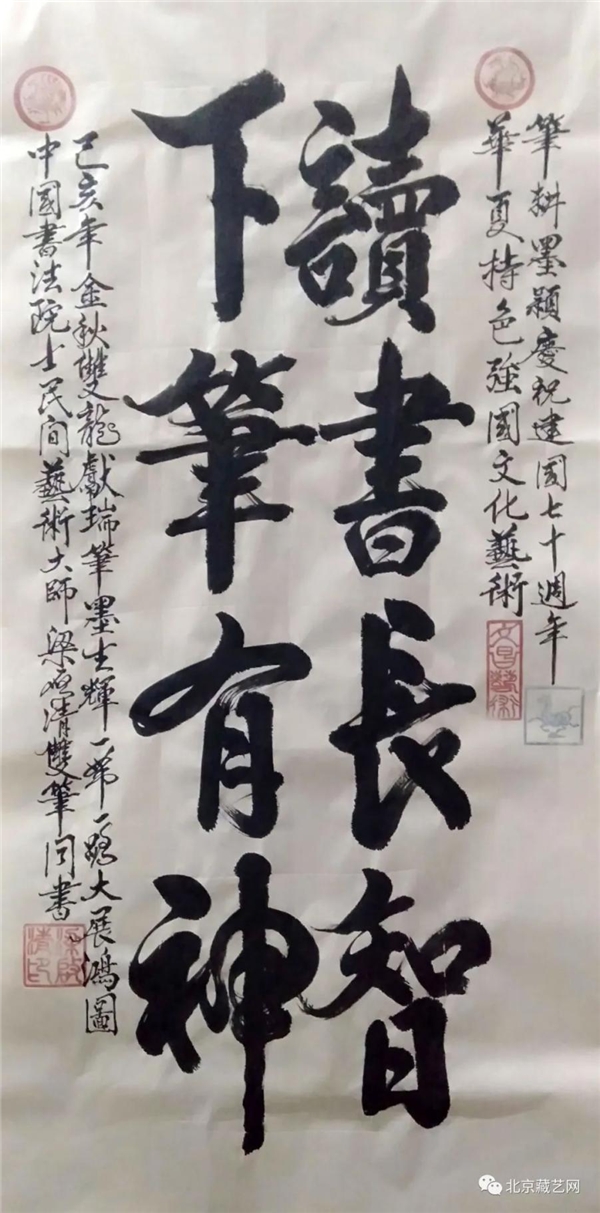 筆耕墨穎慶祝建國七十週年
華夏特色強國文化藝術
讀書長智
下筆有神
己亥年金秋雙龍獻瑞筆墨生輝一第一鶴大展鴻圖
中國書法院士民间藝術大師梁啟清雙筆同書
北京藏艺网